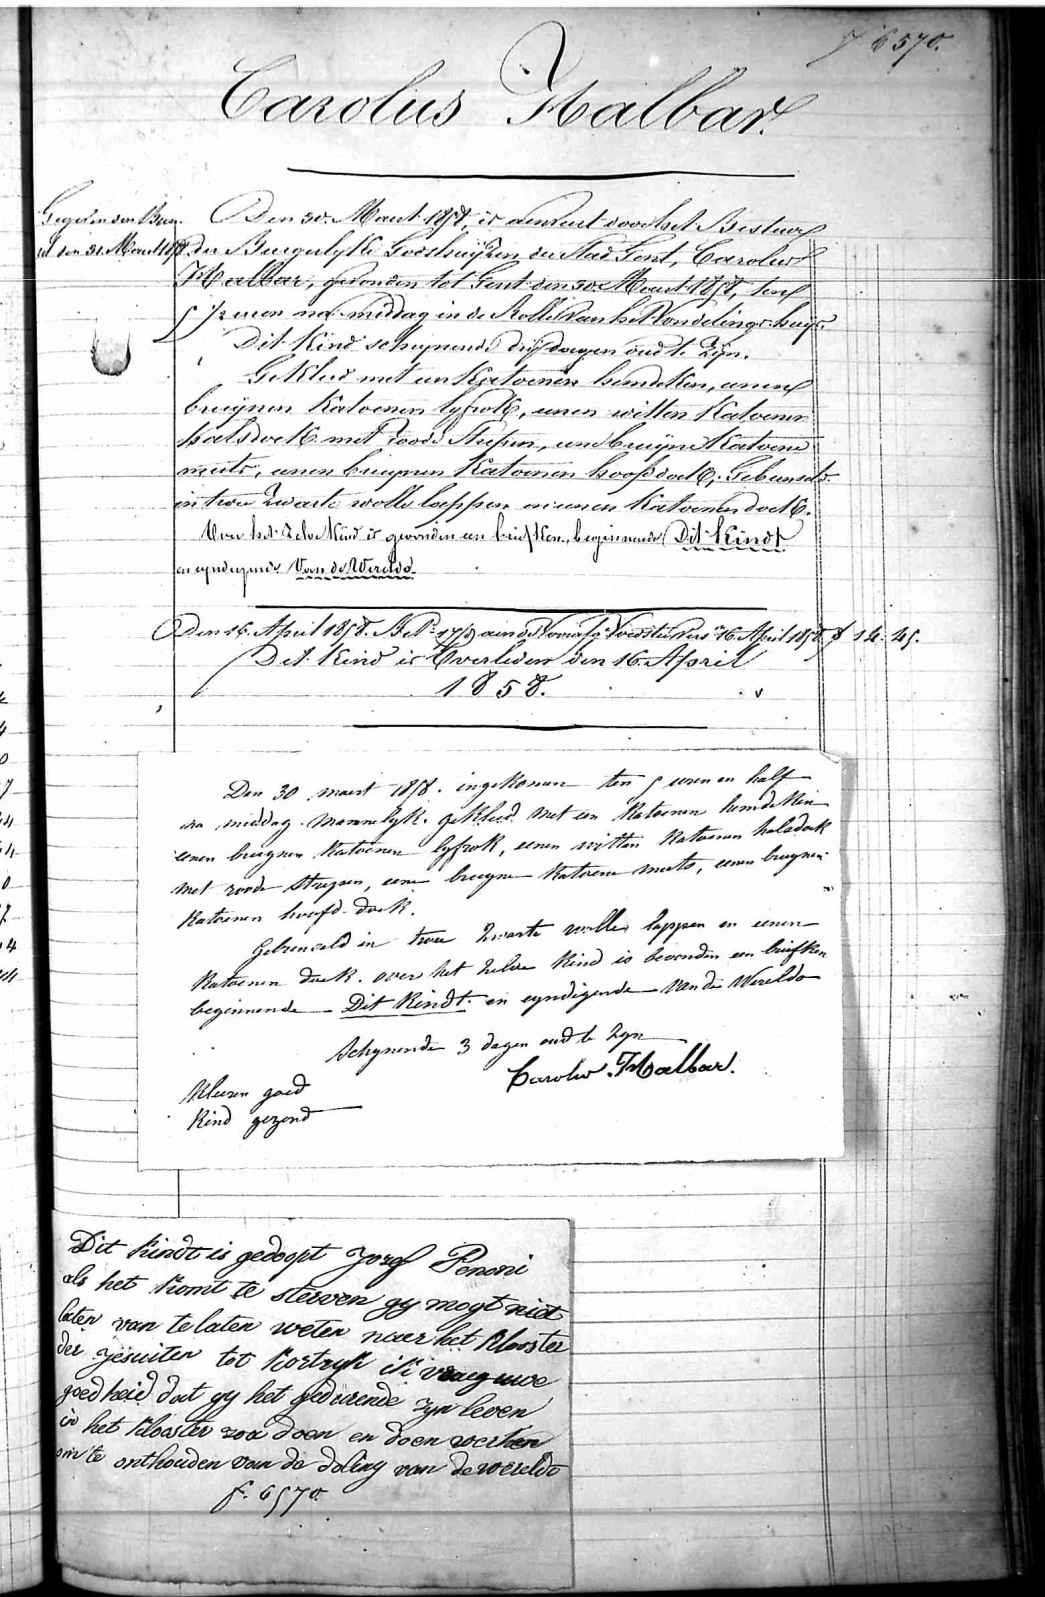 f 6570.
Carolus Halbar.
Gegeven den
den 31 Maart 1858.
Den 30. Maart 1858, is aenveerd door het Bestuur
der Burgerlyke Godshuyzen der Stad Gent, Carolus
Halbar, gevonden tot Gent den 30 Maart 1858, ten
5 1/2 uren na middag in de Rolle van het Vondelinghuys.
Dit Kind schynende dry dagen oud te zyn.
Gekleed met een Katoenen hemdeken, eenen
bruynen Katoenen lyfrok, eenen witten Katoenen
halsdoek met roode Strepen, eene bruyne Katoene
muts, eenen bruynen Katoenen hoofdoek, Gebunseld
in twee Zwarte wolle lappen en eenen Katoenen doek.
Over het Zelve Kind is gevonden een briefken, beginnende Dit Kindt
en eyndigende Van de Werelds.
Den 16. April 1858. 16 April 1858 f 14.45.
Dit Kind is Overleden den 16 April
1858.
Den 30 maert 1858. ingekomen ten 5 uren en half
na middag. mannelyk. gekleed met een Katoenen hemdeken
eenen bruynen Katoenen lyfrok, eenen witten Katoenen halsdoek
met roode strepen, eene bruyne Katoene muts, eenen bruynen
Katoenen hoofd-doek.
Gebunseld in twee zwarte wolle lappen en eenen
Katoenen doek. over het zelve Kind is bevonden een briefken
beginnende Dit Kindt. en eyndigende Van de Werelds
Schynende 3 dagen oud te zyn
Carolus Halbar.
Kleeren goed
Kind gezond
Dit kindt is gedoopt Jozef Penoni
als het komt te sterven gy mogt niet
laten van te laten weten naer het Klooster
der jesuiten tot Kortryk ik vraeg uwe
goedheid dat gy het gedurende zyn leven
in het Klooster zou doen en doen werken
om te onthouden van de doling van de werelds
f. 6570.